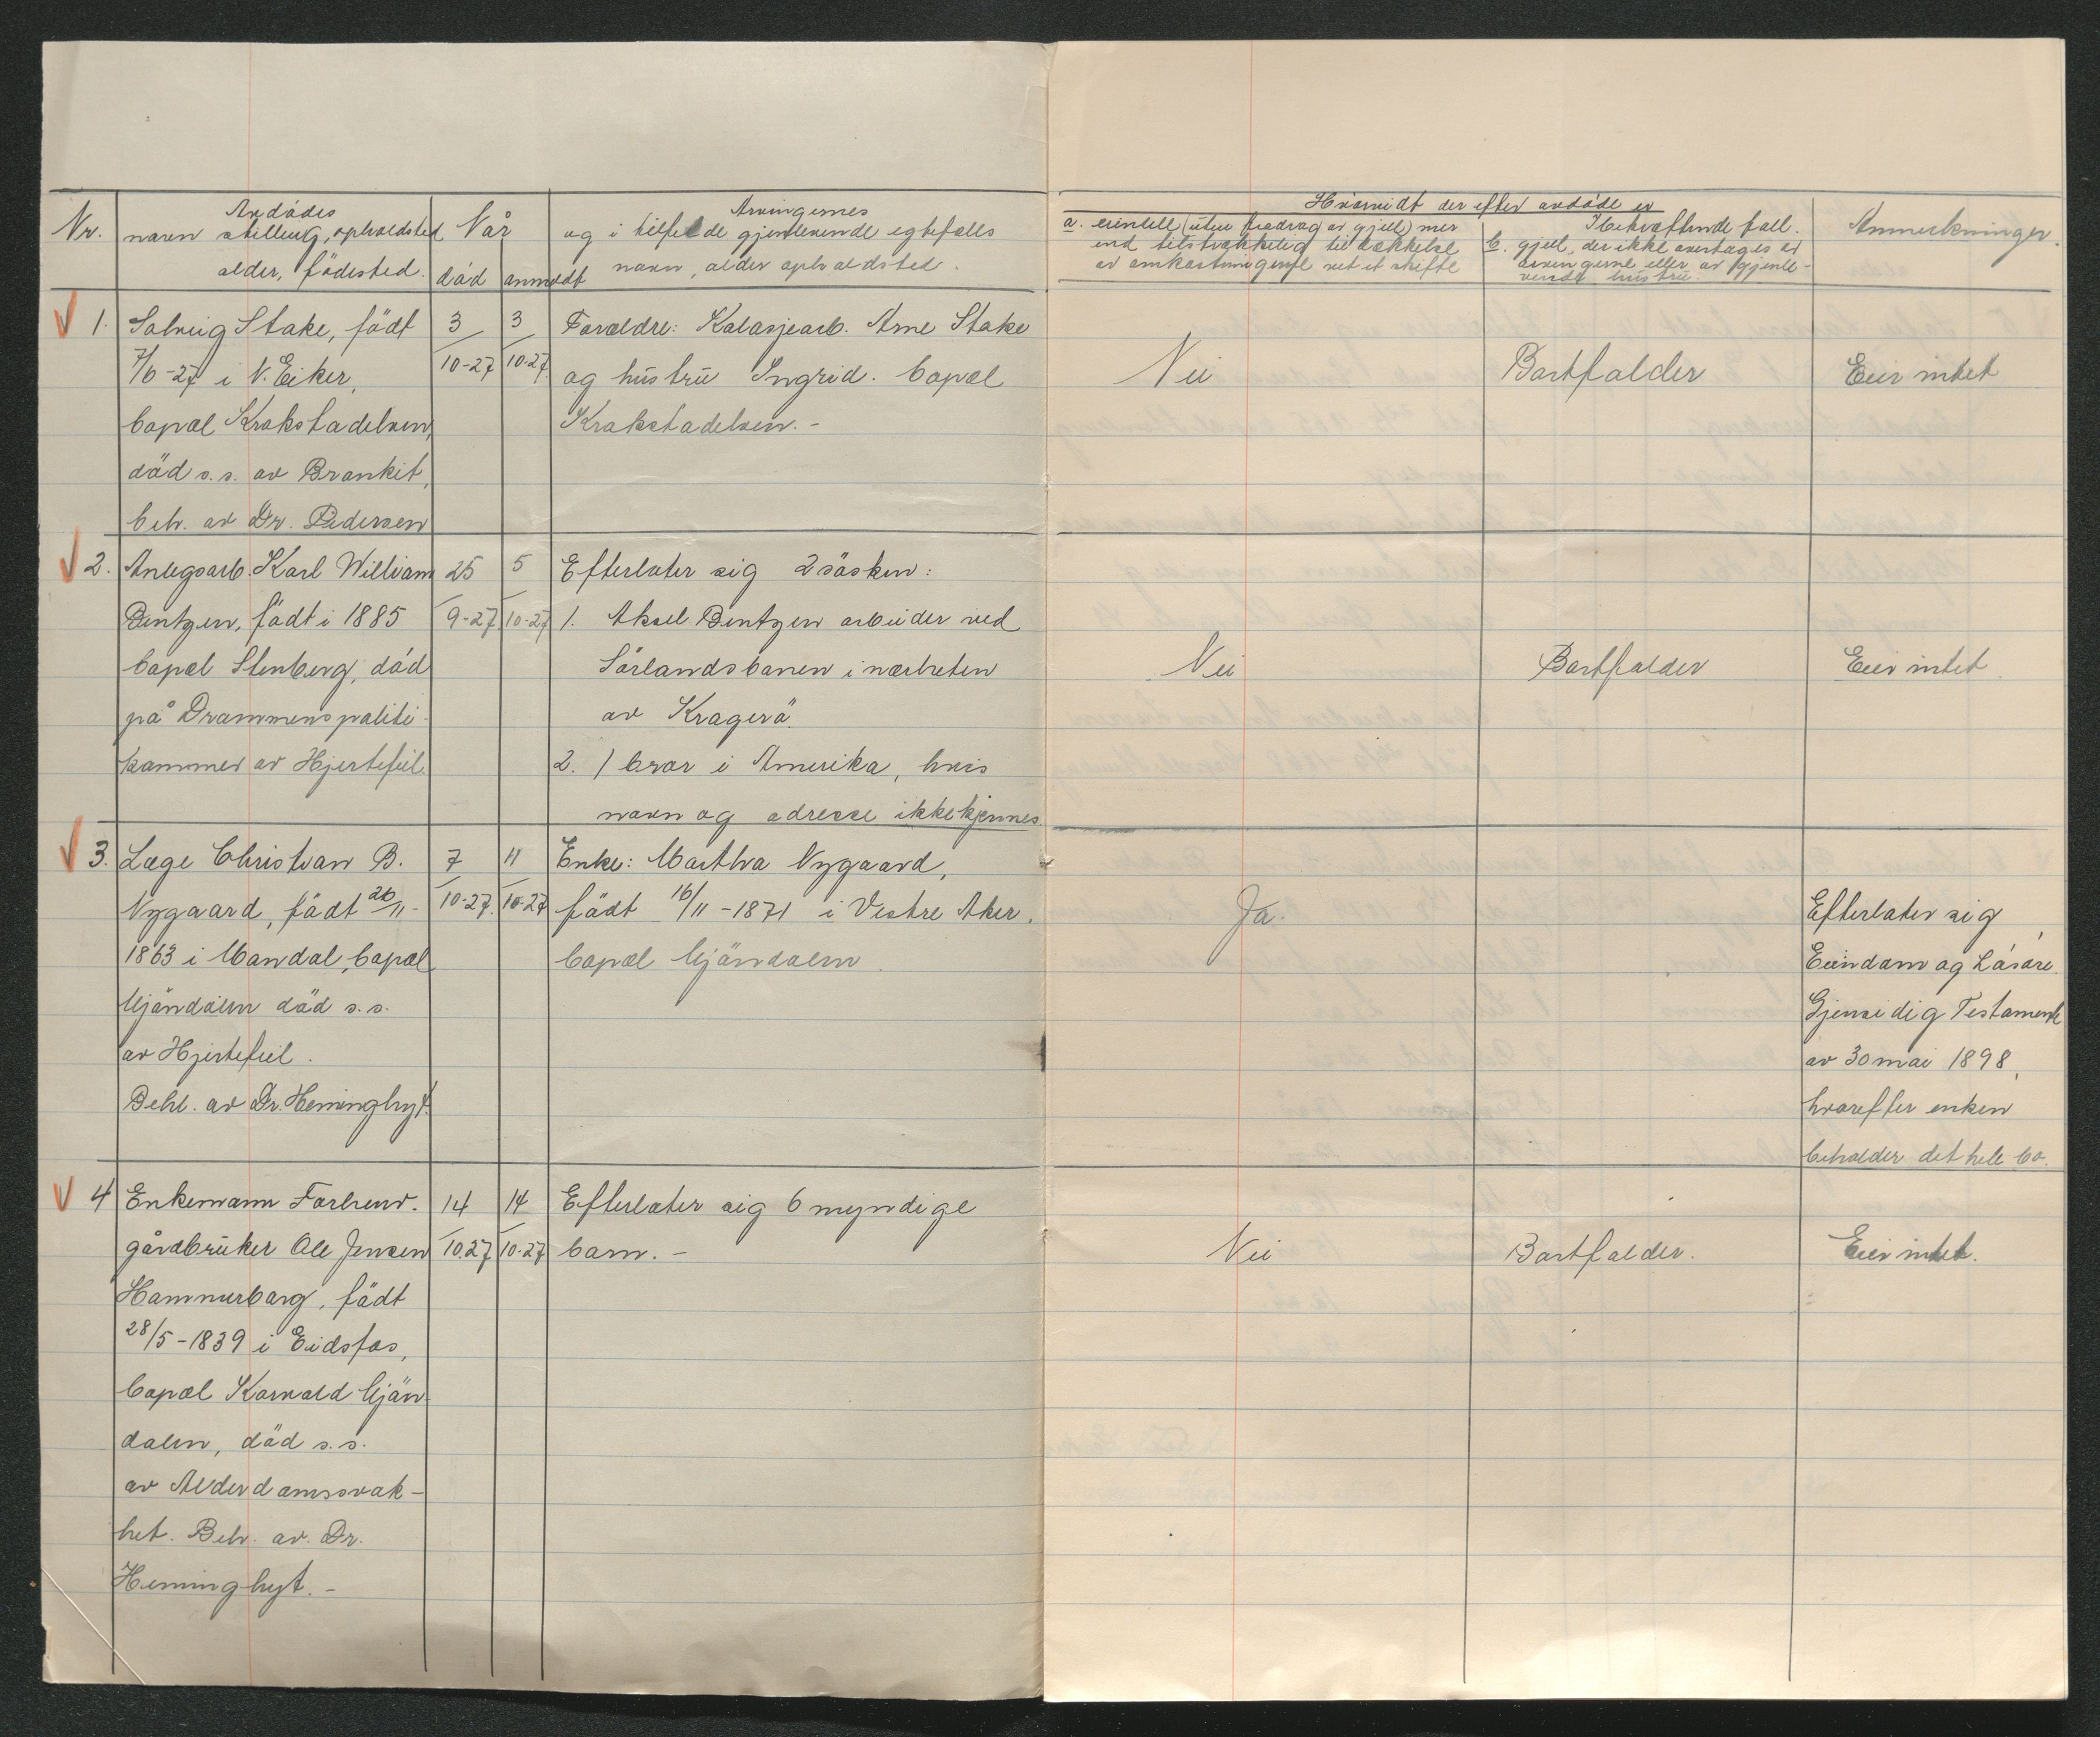 Nr.
Avdödes
navn stilling, opholdsted
alder, födested.
Når
död
anmeldt
Arvingernes
og i tilfelde gjenlevende egtefelles
navn, alder opholdsted.
Hvorvidt der efter avdöde er
a. eiendele (uten fradrag av gjeld) mer
end tilstrækkelig til dækkelse
av omkostningerne ved et skifte
I bekræftende fall.
b. gjeld, der ikke overtages av
arvingerne eller av gjenle-
vende hustru.
Anmerkninger.
1. Solveig Stake, födt
7/6-27 i N. Eiker,
bopæl Krokstadelven,
död s.s. av Bronkit,
beh. av Dr. Pedersen
3/10-27
3/10-27.
Foreldre: Kalasjearb. Arne Stake
og hustru Ingrid. bopæl
Krokstadelven.-
Nei
Bortfalder
Eier intet
2. Anlegsarb. Karl William
Bentzen, födt i 1885
bopæl Stenberg, död
på Drammens politi-
kammer av Hjertefeil.
25/9-27
5/10-27
Efterlater sig 2 sösken:
1. Aksel Bentzen arbeider ved
Sörlandsbanen i nærheten
av Kragerö.
2. 1 bror i Amerika, hvis
navn og adresse ikke kjennes.
Nei
Bortfalder
Eier intet.
3. Læge Christian B.
Nygaard, födt 26/11-
1863 i Mandal, bopæl
Mjöndalen död s.s.
av Hjertefeil.
Behl. av Dr. Heminghyt.
7/10-27.
11/10-27
Enke: Martha Nygaard,
födt 16/11-1871 i Vestre Aker.
bopæl Mjöndalen.
Ja.
Efterlater sig
Eiendom og Lösöre.
Gjensidig Testamente
av 30 mai 1898,
hvorefter enken
beholder det hele bo.
4 Enkemann Forhenv.
gårdbruker Ole Jensen
Hammerborg, födt
28/5-1839 i Eidsfos,
bopæl Korvald Mjön-
dalen, död s.s.
av Alderdomssvak-
het. Beh. av. Dr.
Heminghyt.-
14/10.27
14/10-27
Efterlater sig 6 myndige
barn.-
Nei
Bortfalder.
Eier intet.